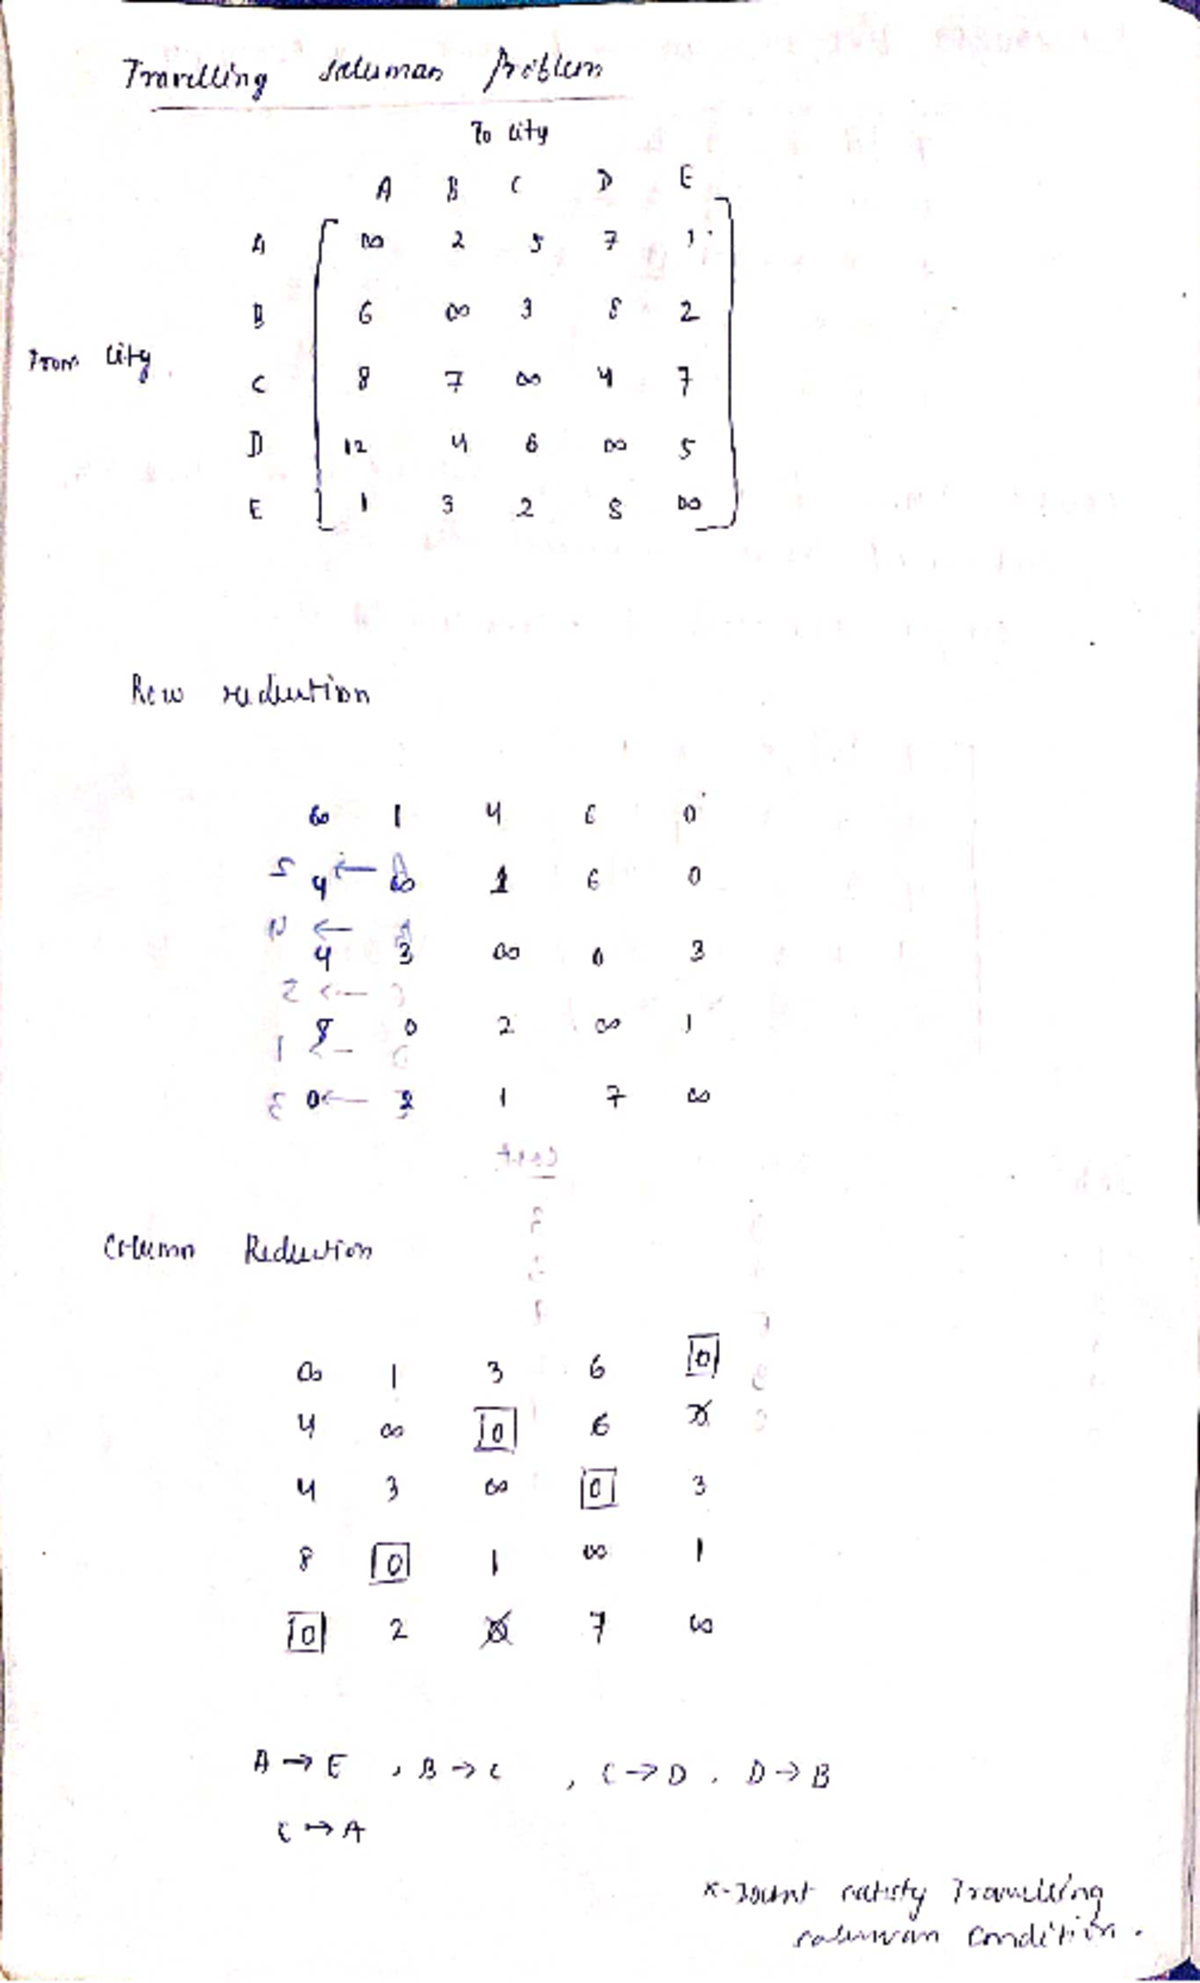 Travelling salesman Problem
To city
A B C D E
A ∞ 2 5 7 1
B 6 ∞ 3 8 2
From city
C 8 7 ∞ 4 7
D 12 4 6 ∞ 5
E 1 3 2 8 ∞
Row reduction
∞ 1 4 6 0
4 ∞ 1 6 0
4 3 ∞ 0 3
8 0 2 ∞ 1
0 2 1 7 ∞
Column Reduction
∞ 1 3 6 0
4 ∞ 0 6 0
4 3 ∞ 0 3
8 0 1 ∞ 1
0 2 0 7 ∞
A → E , B → C , C → D , D → B
E → A
satisfy Travelling
salesman condition.